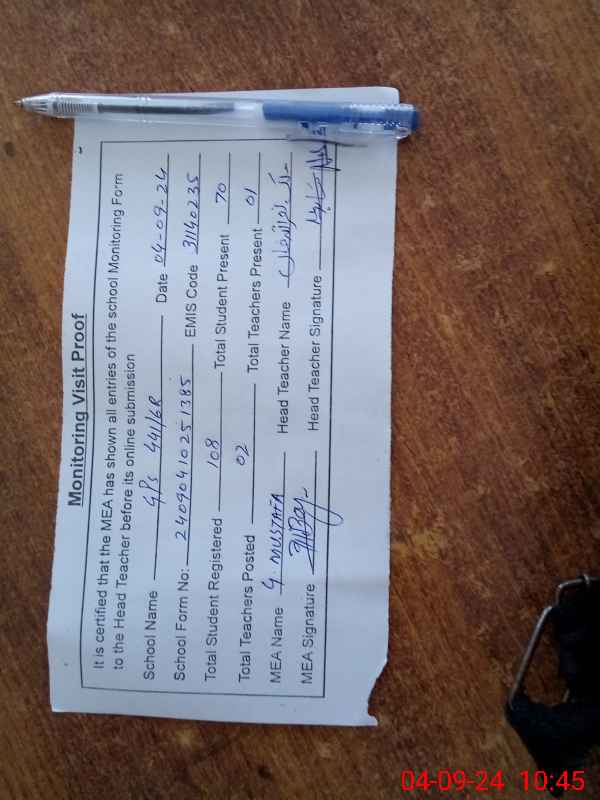 Monitoring Visit Proof
It is certified that the MEA has shown all entries of the school Monitoring Form
to the Head Teacher before its online submission
School Name GPS 441/6R Date 04-09-24
School Form No: 240904102 51385 EMIS Code 31140235
Total Student Registered 108 Total Student Present 70
Total Teachers Posted 02 Total Teachers Present 01
MEA Name G. MUSTAFA Head Teacher Name
MEA Signature Head Teacher Signature
04-09-24 10:45